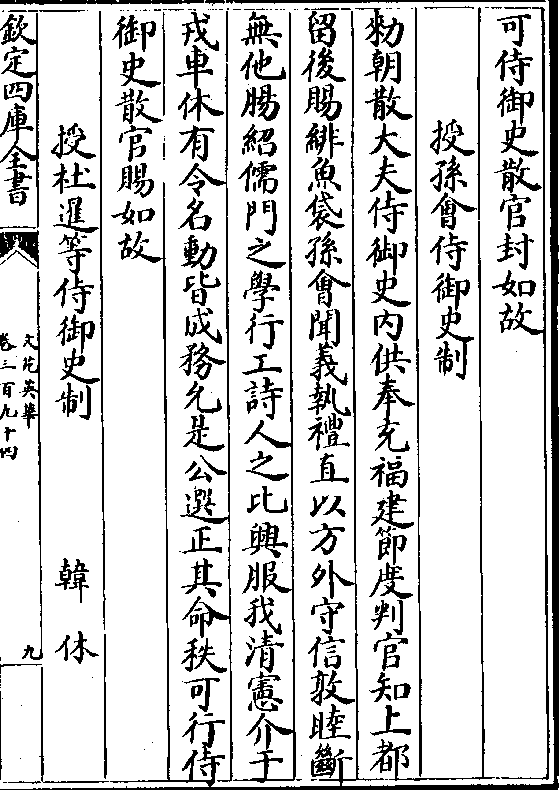 可侍御史散官封如故
授孫會侍御史制
勑朝散大夫侍御史内供奉充福建節度判官知上都
留後賜緋魚袋孫會聞義執禮直以方外守信敦睦斷
無他腸紹儒門之學行工詩人之比興服我清憲介于
戎車休有令名動皆成務允是公選正其命秩可行侍
御史散官賜如故
授杜暹等侍御史制 韓休
欽定四庫全書
文苑英華
卷三百九十四
九